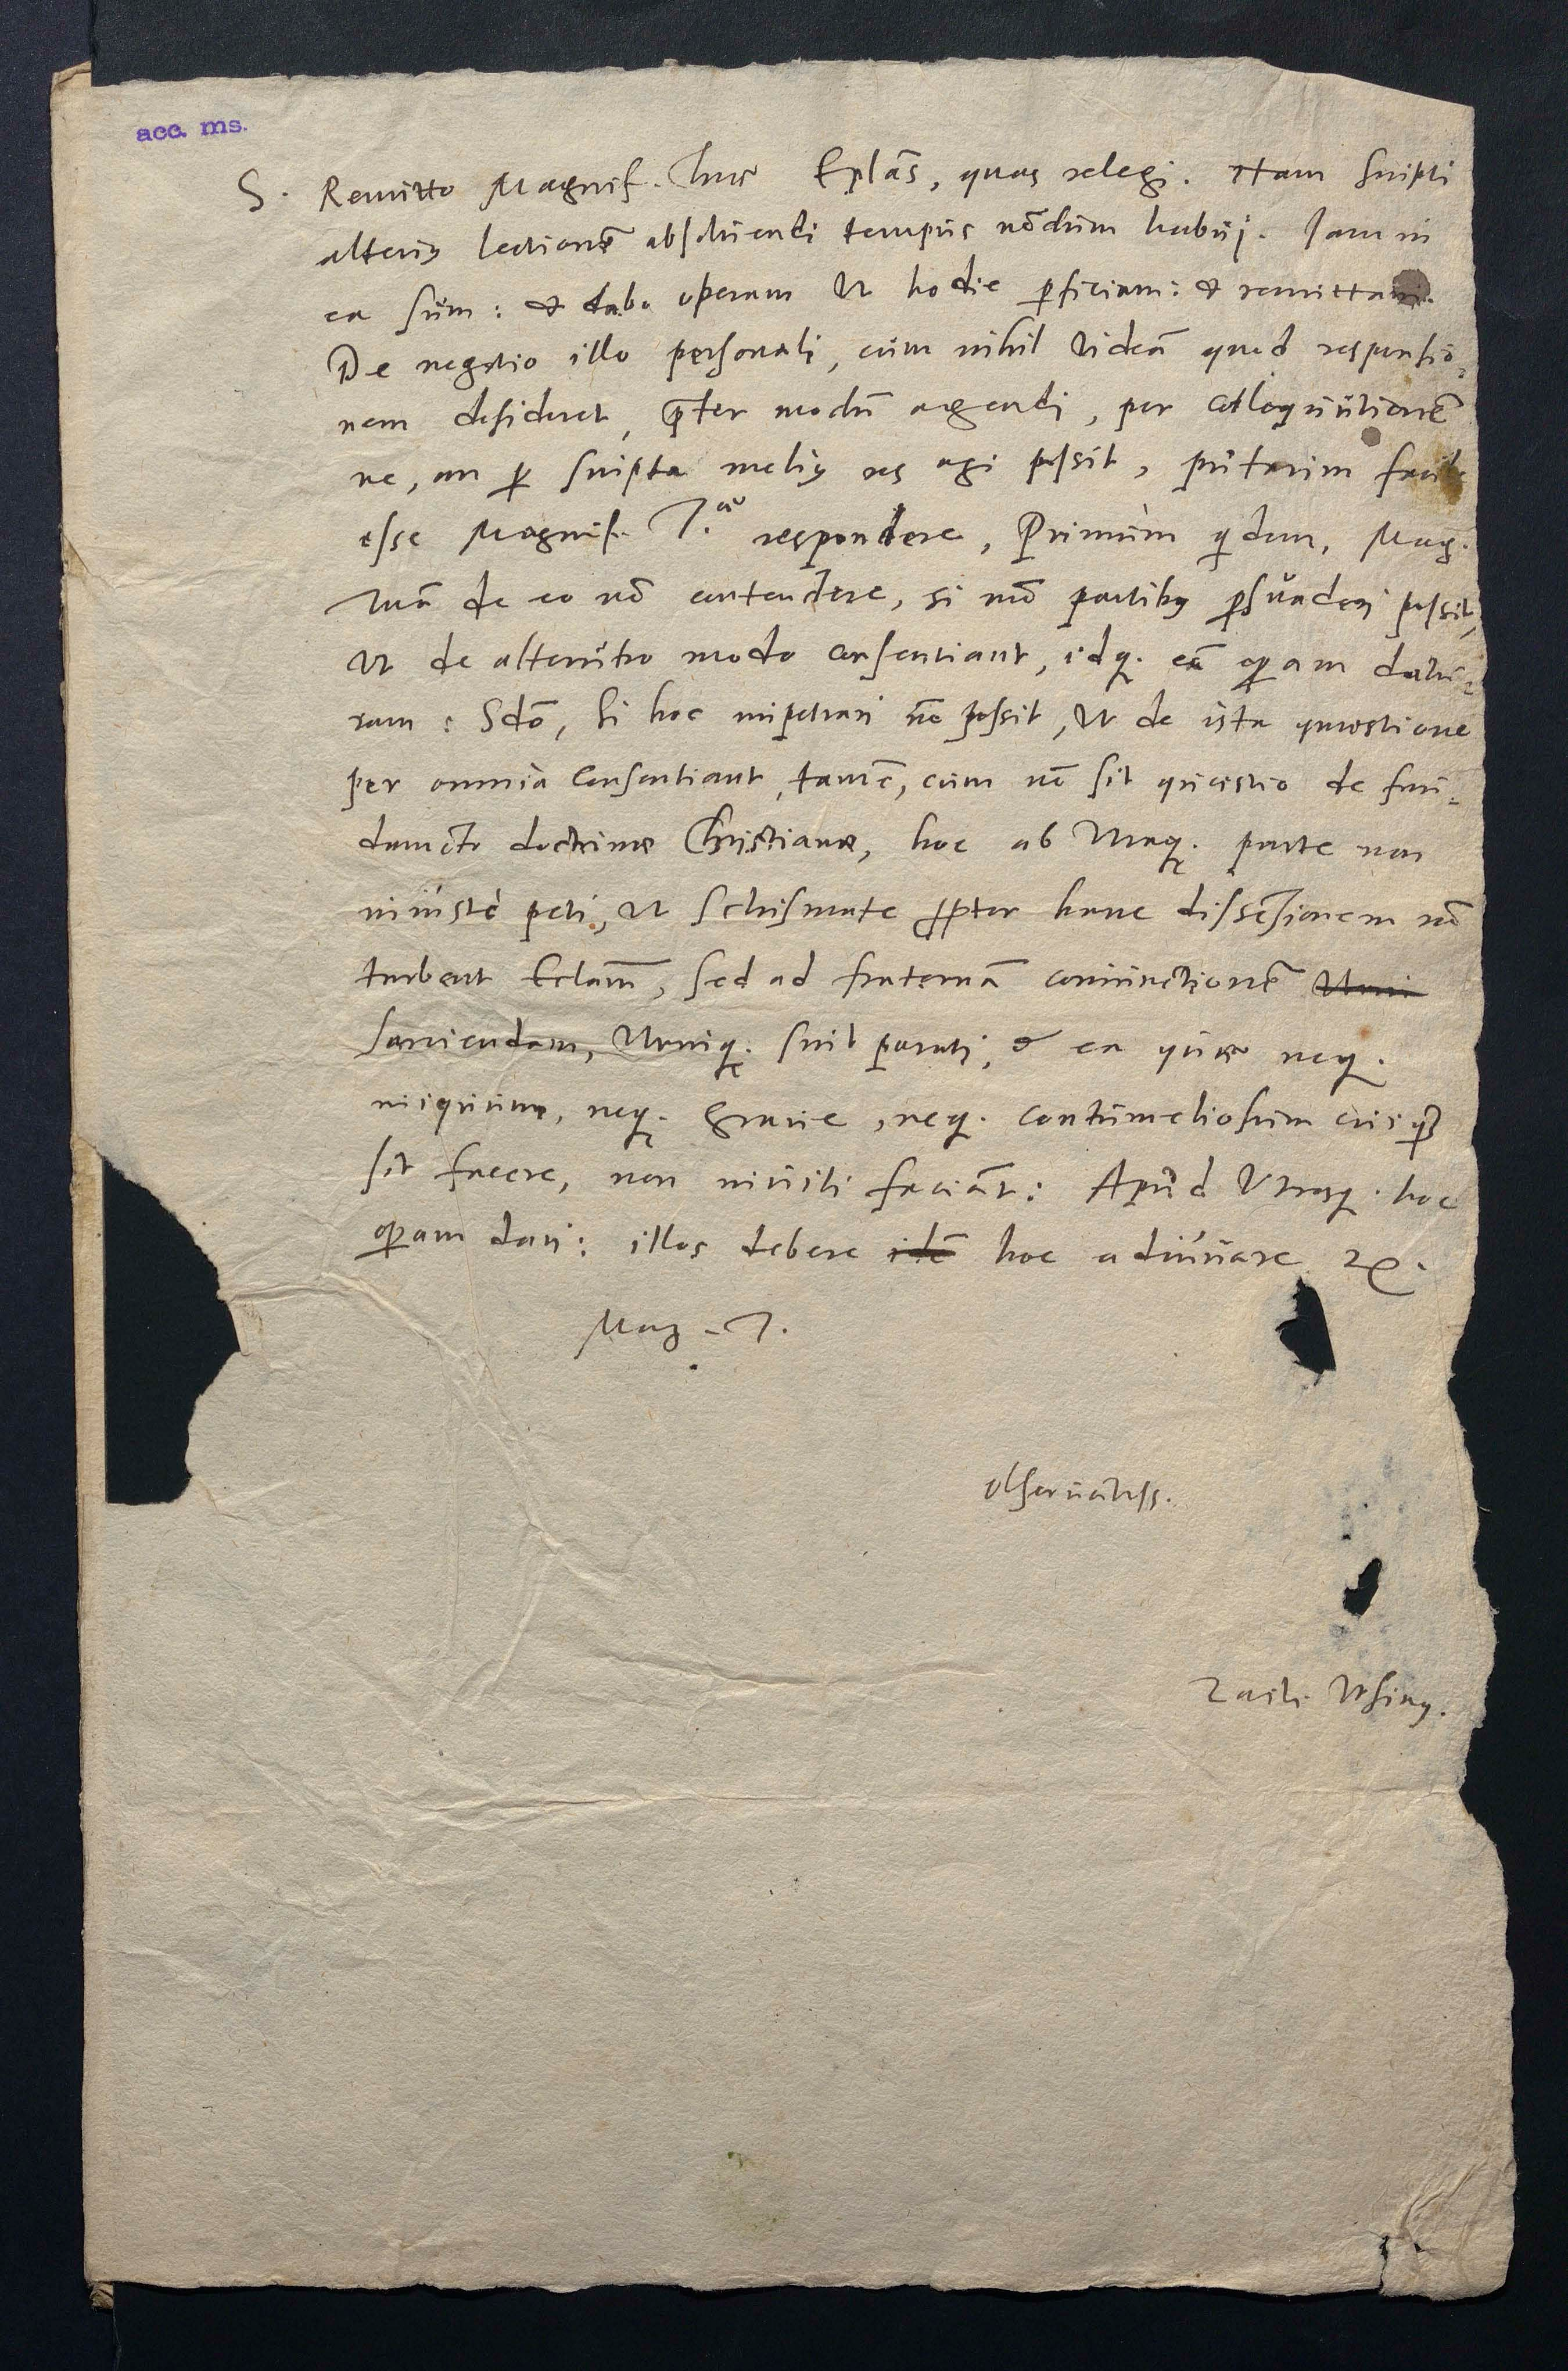 acc. ms.
S. Remitto Magnif. Tuae Eplās, quas relegi. Nam scripti
alterius lectionē absoluendi tempus nōdum habui. Iam in
ea sum: & dabo operam ut hodie perficiam: & remittam.
De negotio illo personali, cum nihil uideā quod responsio-
nem desideret, praeter modū agendi, per colloquutionē
ne, an per scripta melius res agi possit, putarim facile
esse Magnif. T. respondere, Primum quidem, Mag.
tuā de eo nō contendere, si mō partibus persuaderi possit,
ut de alterutro modo consentiant, idq. eā operam datu-
ram: Sdō, si hoc impetrari nō possit, ut de ista quaestione
per omnia consentiant, tamē, cum nō sit quaestio de fun-
damēto doctrinae Christianae, hoc ab utraq. parte non
iniuste peti, ut schismate propter hanc dissensionem nō
turbent Eclam̄, sed ad fraternā coniunctionē
sanciendam, utriq. sint parati, & ea quae neq.
iniquum, neq. graue, neq. contumeliosum cuiquam
sit facere, non inuiti faciāt: Apud utrosq. hoc
operam dari: illos debere idē hoc adiuuare &c.
Mag. T.
obseruātiss.
Zach. Ursinus.